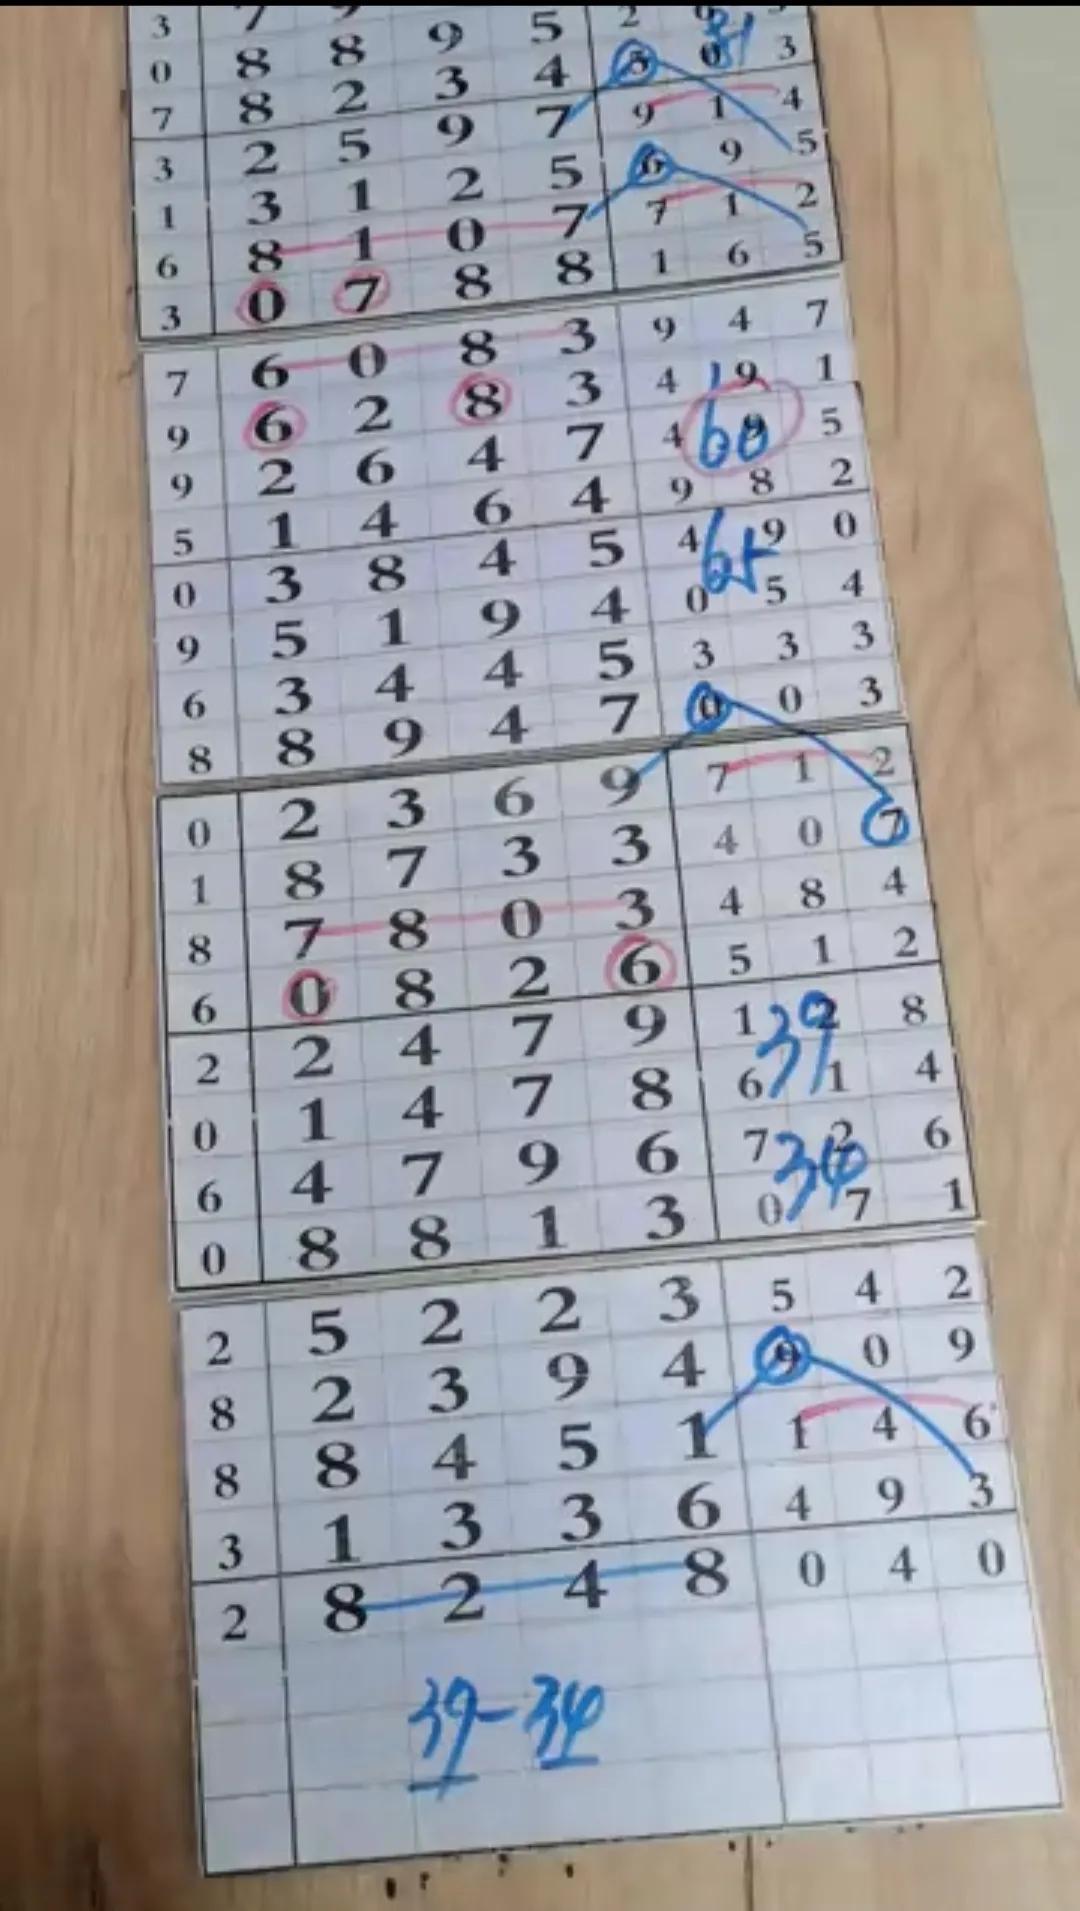 3 7 9 9 5 2
0 8 8 9 5 5 0 3
7 8 2 3 4 9 1 4
3 2 5 9 7 6 9 5
1 3 1 2 5 7 1 2
6 8 1 0 7 1 6 5
3 0 7 8 8
7 6 0 8 3 9 4 7
9 6 2 8 3 4 9 1
9 2 6 4 7 4 9 5
60
5 1 4 6 4 9 8 2
0 3 8 4 5 4 9 0
65
9 5 1 9 4 0 5 4
6 3 4 4 5 3 3 3
8 8 9 4 7 0 0 3
0 2 3 6 9 7 1 2
1 8 7 3 3 4 0 7
8 7 8 0 3 4 8 4
6 0 8 2 6 5 1 2
2 2 4 7 9 1 2 8
39
0 1 4 7 8 6 1 4
6 4 7 9 6 7 2 6
34
0 8 8 1 3 0 7 1
2 5 2 2 3 5 4 2
8 2 3 9 4 9 0 9
8 8 4 5 1 1 4 6
3 1 3 3 6 4 9 3
2 8 2 4 8 0 4 0
39-34